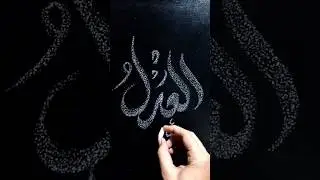 العدل